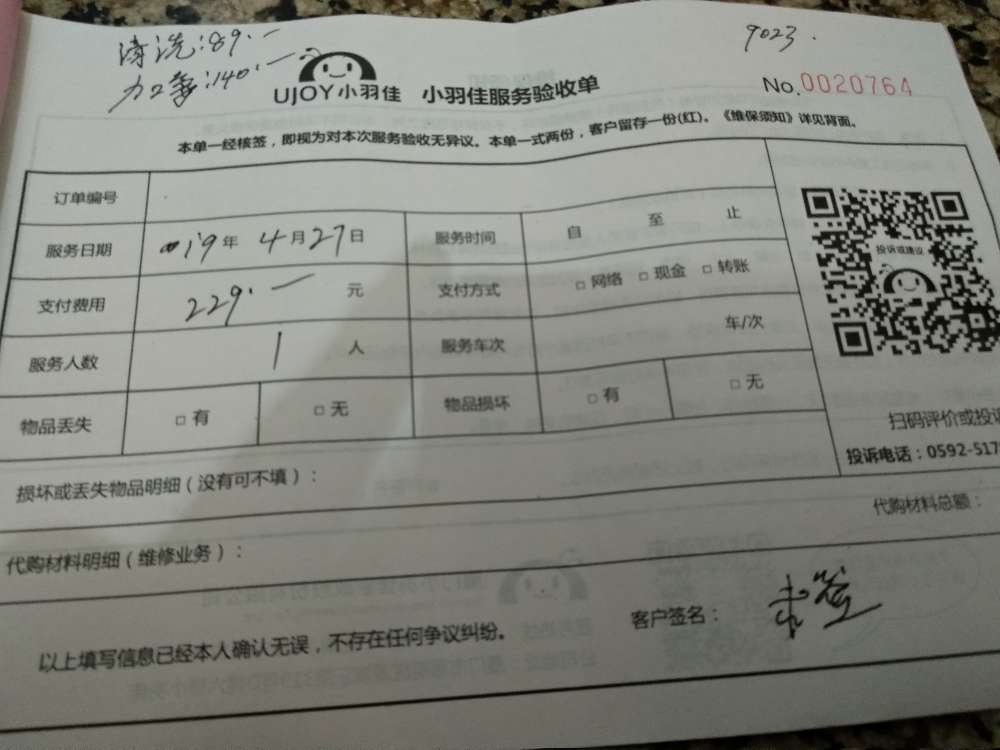 清洗:89.一
加氟:140.一
9023.
UJOY小羽佳 小羽佳服务验收单
No.0020764
本单一经核签，即视为对本次服务验收无异议。本单一式两份，客户留存一份(红)。《维保须知》详见背面。
订单编号
服务日期 2019年4月27日 服务时间 自 至 止
支付费用 229.一 元 支付方式 □ 网络 □ 现金 □ 转账
服务人数 1 人 服务车次 车/次
物品丢失 □ 有 □ 无 物品损坏 □ 有 □ 无
投诉或建议
扫码评价或投诉
投诉电话：0592-517
损坏或丢失物品明细（没有可不填）：
代购材料明细（维修业务）： 代购材料总额：
以上填写信息已经本人确认无误，不存在任何争议纠纷。 客户签名：